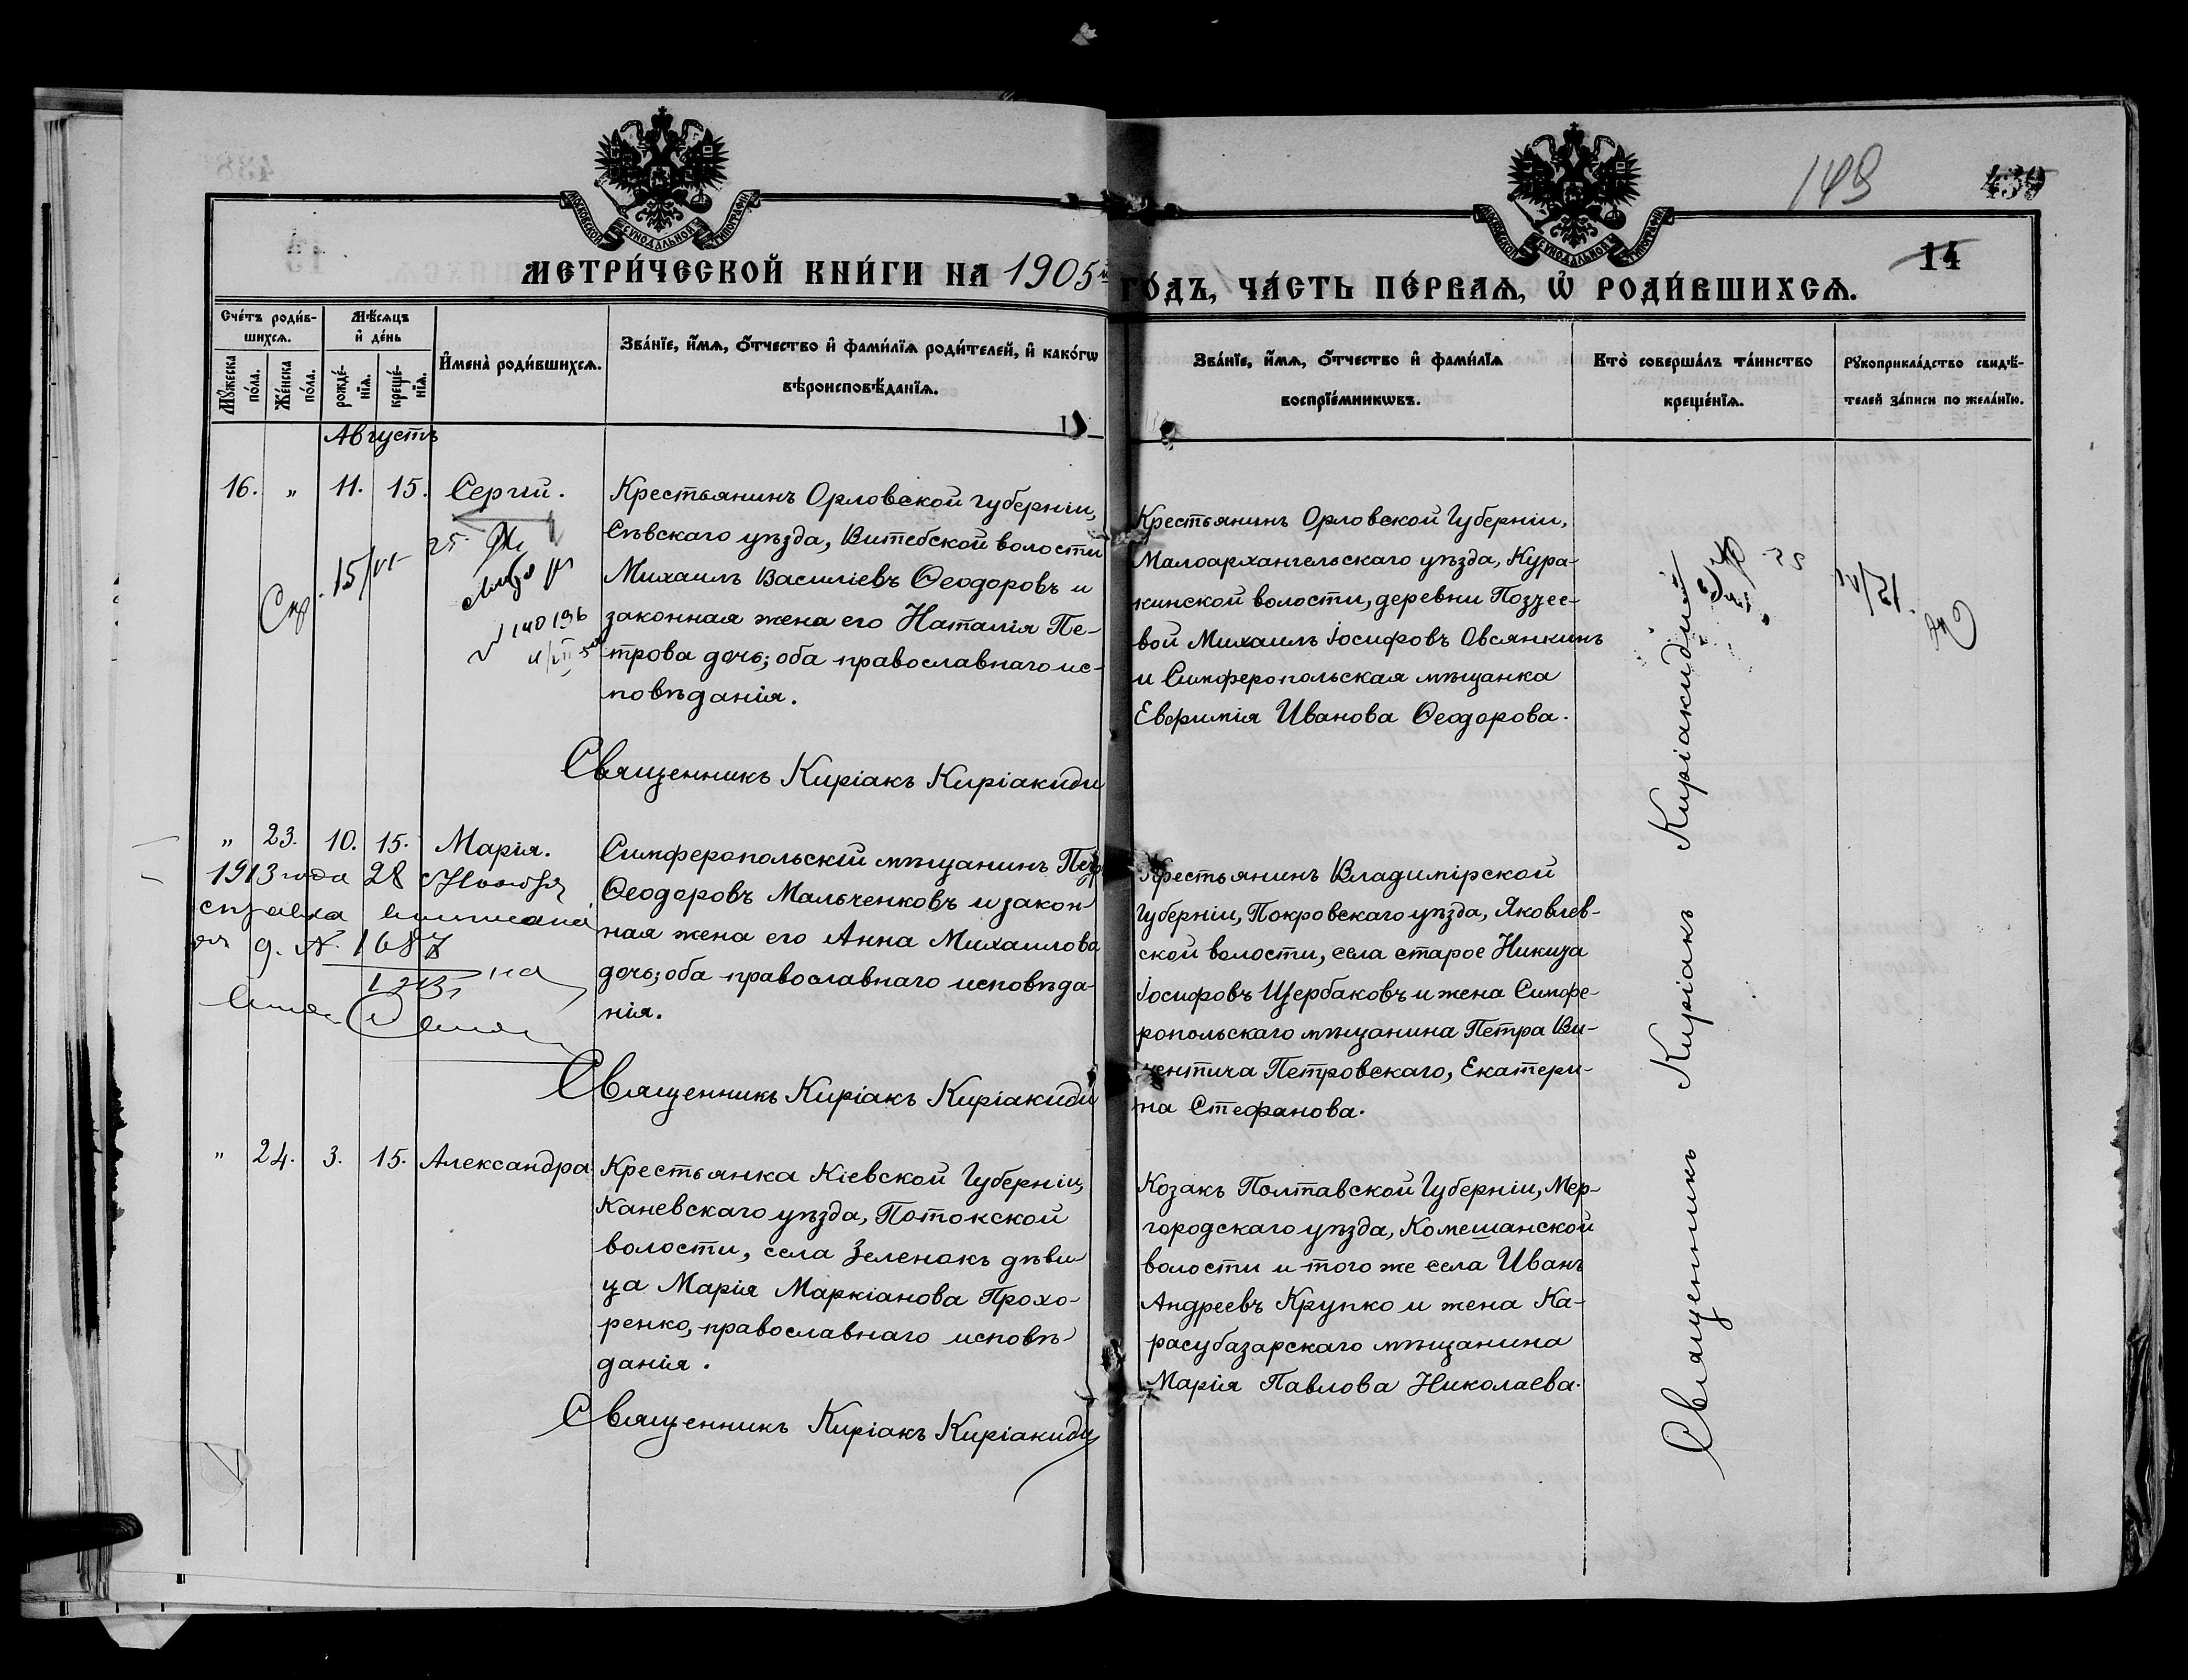 149 439
МОСКОВСКОЙ СѴНОДАЛЬНОЙ ТИПОГРАФІИ
МОСКОВСКОЙ СѴНОДАЛЬНОЙ ТИПОГРАФІИ
14
МЕТРИ́ЧЕСКОЙ КНИ́ГИ НА 1905й
ГО́ДЪ, ЧА́СТЬ ПЕ́РВАѦ, Ѡ҆ РОДИ́ВШИХСѦ.
Сче́тъ роди́в-
шихсѧ.
Мꙋ́жеска по́ла.
Же́нска по́ла.
Мѣ́сѧцъ
и҆ де́нь
рожде́-
нїѧ.
креще́-
нїѧ.
И҆мена̀ роди́вшихсѧ.
Зва́нїе, и҆́мѧ, ѻ҆́тчество и҆ фамѝлїѧ роди́телей, и҆ како́гѡ
вѣроисповѣ́данїѧ.
Зва́нїе, и҆́мѧ, ѻ҆́тчество и҆ фамѝлїѧ
воспрїе́мникѡвъ.
Кто̀ соверша́лъ та́инство
креще́нїѧ.
Рꙋкоприкла́дство свидѣ́-
телей за́писи по жела́нїю.
Августъ
16. „ 11. 15. Сергій.
Крестьянинъ Орловской губерніи,
Сѣвскаго уѣзда, Витебской волости
Михаилъ Василіевъ Ѳеодоровъ и
законная жена его Наталія Пе-
трова дочь; оба православнаго ис-
повѣданія.
Священникъ Киріакъ Киріакиди
Крестьянинъ Орловской Губерніи,
Малоархангельскаго уѣзда, Кура-
кинской волости, деревни Поздее-
вой Михаилъ Іосифовъ Овсянкинъ
и Симферопольская мѣщанка
Евфимія Иванова Ѳеодорова.
Спр. 15/VI
140196
„ 23. 10. 15. Марія.
1913 года 28 Ноября
справка выписана
д. №. 1687
Симферопольскій мѣщанинъ Петр
Ѳеодоровъ Мальченковъ и закон-
ная жена его Анна Михаилова
дочь; оба православнаго исповѣда-
нія.
Священникъ Киріакъ Киріакиди
Крестьянинъ Владимірской
Губерніи, Покровскаго уѣзда, Яковлев-
ской волости, села старое Никита
Іосифовъ Щербаковъ и жена Симфе-
ропольскаго мѣщанина Петра Ви-
кентича Петровскаго, Екатери-
на Стефанова.
„ 24. 3. 15. Александра.
Крестьянка Кіевской Губерніи,
Каневскаго уѣзда, Потокской
волости, села Зеленокъ дѣви-
ца Марія Маркіанова Прохо-
ренко, православнаго исповѣ-
данія.
Священникъ Киріакъ Киріакиди
Козакъ Полтавской Губерніи, Мер-
городскаго уѣзда, Комешанской
волости и того же села Иванъ
Андреевъ Крупко и жена Ка-
расубазарскаго мѣщанина
Марія Павлова Николаева.
Священникъ Киріакъ Киріакидій